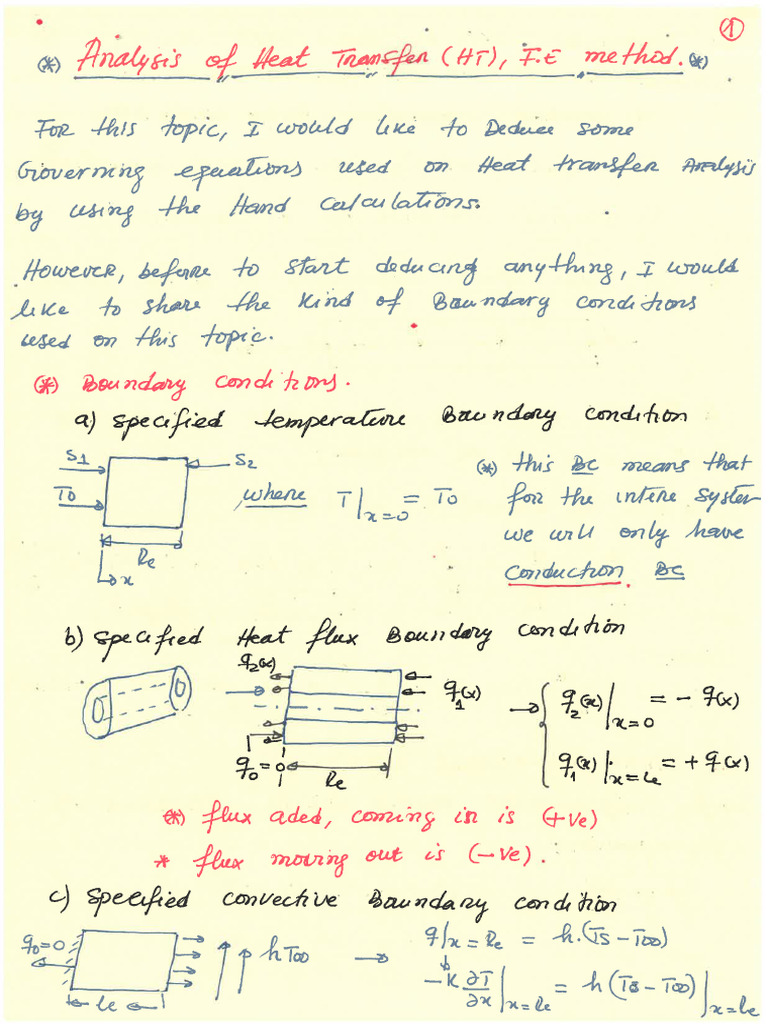 1
(*) Analysis of Heat Transfer (HT), F.E method. (*)
For this topic, I would like to Deduce some
Governing equations used on Heat transfer Analysis
by using the Hand Calculations.
However, before to start deducing anything, I would
like to share the kind of Boundary conditions
used on this topic.
(*) Boundary conditions.
a) specified temperature Boundary condition
S1
S2
T0
, where T|x=0 = T0
le
x
(*) this BC means that
for the intere system
we will only have
conduction. BC
b) specified Heat flux Boundary condition
q2(x)
q1(x)
q0=0
le
→ { q2(x)|x=0 = - q(x)
q1(x)|x=le = + q(x)
(*) flux aded, coming in is (+ve)
* flux moving out is (-ve).
c) specified convective Boundary condition
q0=0
h T∞
le
→ q|x=le = h.(Ts-T∞)
-k ∂T/∂x|x=le = h(Ts-T∞)|x=le